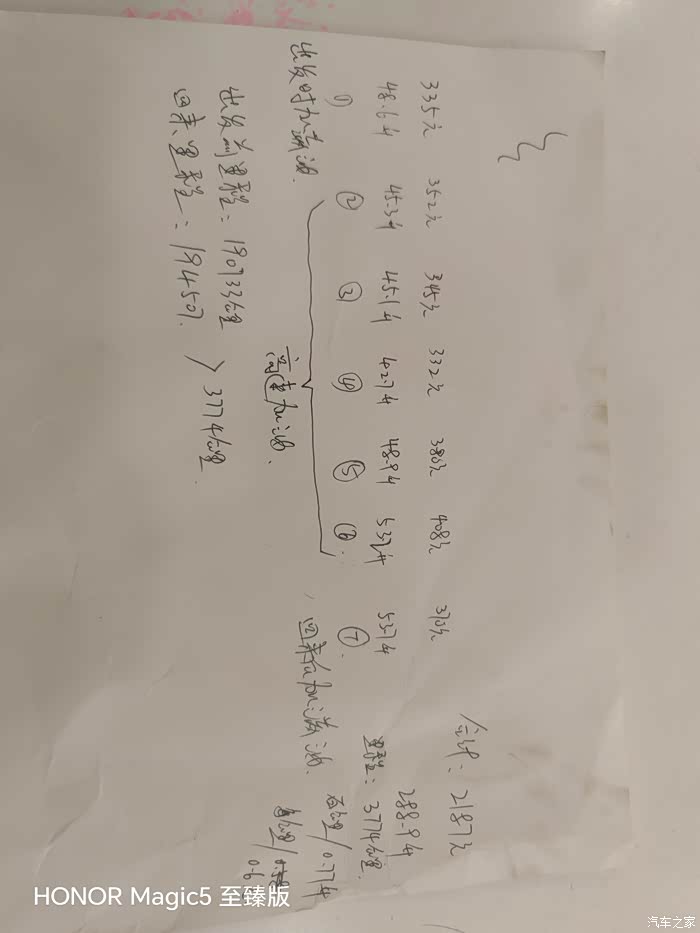 335元 352元 345元 332元 380元 408元 370元 合计：2187元
48.6升 45.3升 45.1升 42.7升 48.9升 53.2升 53.7升 288.9升
① ② ③ ④ ⑤ ⑥ ⑦ 里程：3774公里
出发时加满油 高速加油 回来后加满油 公里/0.77升
出发前里程：190733公里 每公里/0.6
回来里程：194507 3774公里
HONOR Magic5 至臻版
汽车之家